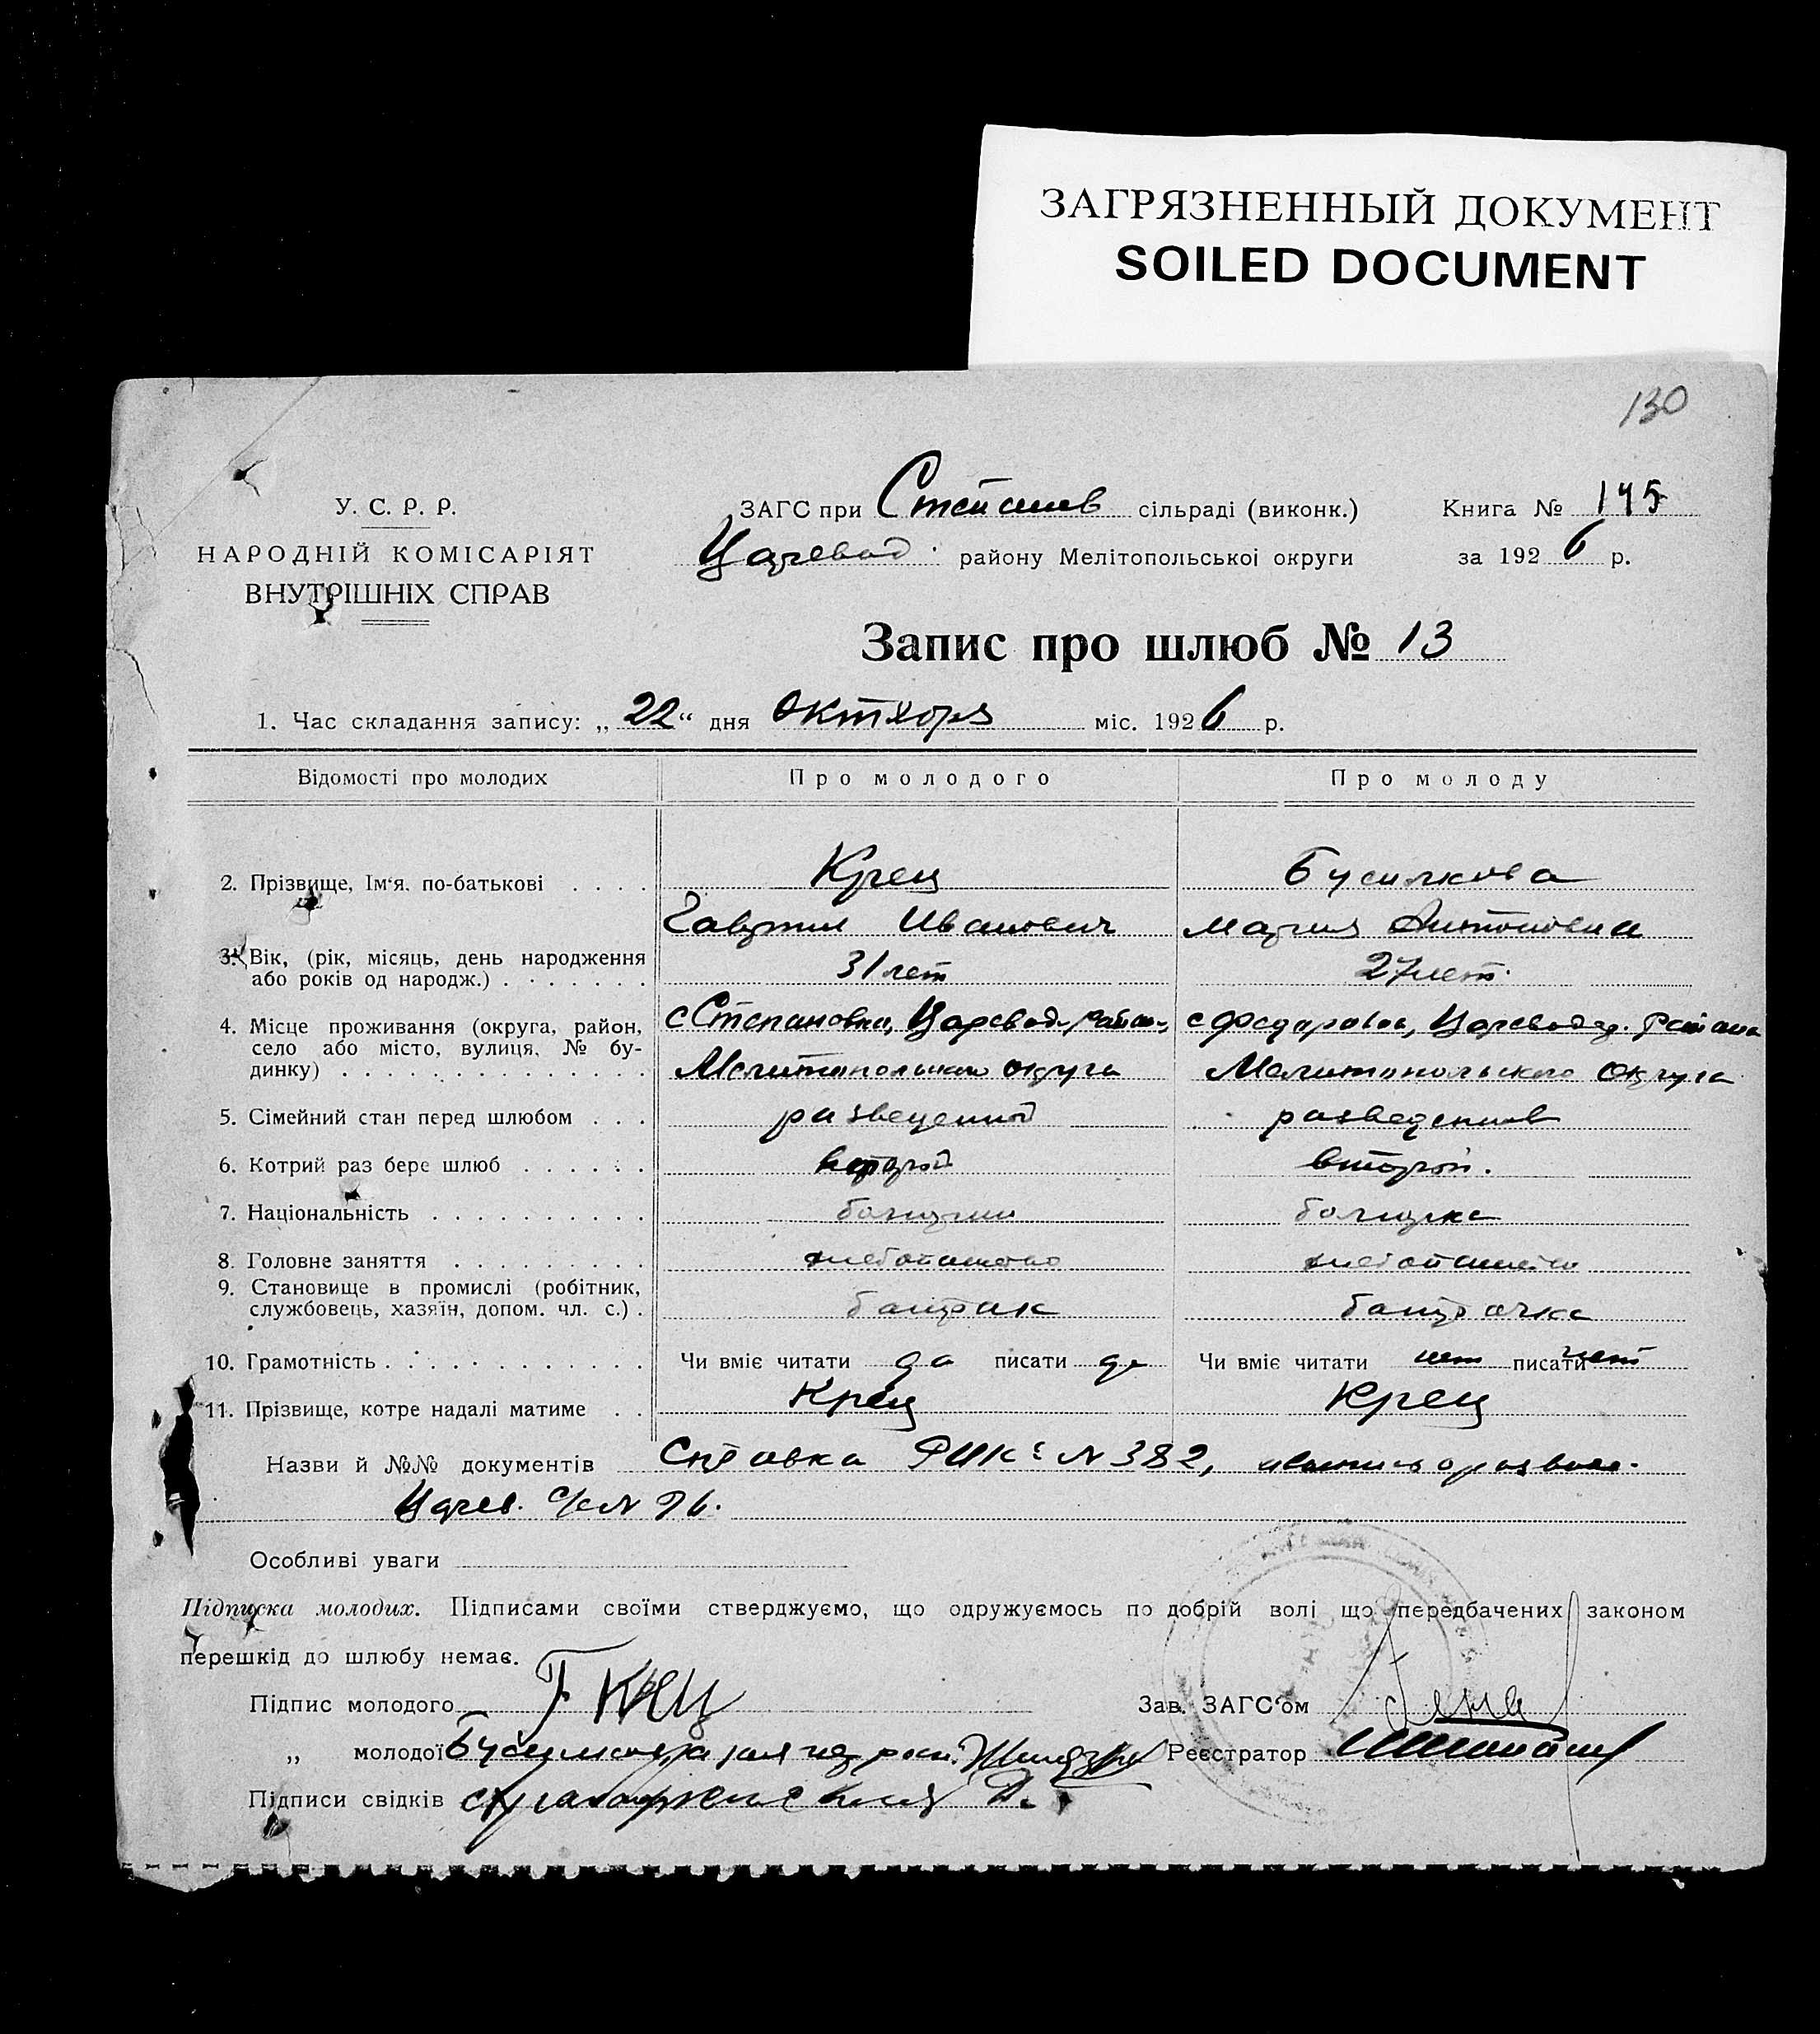 ЗАГРЯЗНЕННЫЙ ДОКУМЕНТ
SOILED DOCUMENT
130
У. С. Р. Р.
НАРОДНІЙ КОМІСАРІЯТ
ВНУТРІШНІХ СПРАВ
ЗАГС при Степанов сільраді (виконк.)
Царевод. району Мелітопольської округи
Книга № 145
за 1926 р.
Запис про шлюб № 13
1. Час складання запису: „22“ дня Октября міс. 1926 р.
Відомості про молодих Про молодого Про молоду
2. Прізвище, Ім‘я, по-батькові . . . . Крец
Гаврил Иванович Мария Антоновна
3. Вік, (рік, місяць, день народження
або років од народж.) . . . . . . . 31 лет 27 лет.
4. Місце проживання (округа, район,
село або місто, вулиця, № бу-
динку) . . . . . . . . . . . . . .
с Степановка, Царевод. район, с Федоровка, Царевод. Района
Мелитопольского Округа Мелитопольского Округа
5. Сімейний стан перед шлюбом . . . разведенный разведенная
6. Котрий раз бере шлюб . . . . . . второй второй.
7. Національність . . . . . . . . . . болгарин болгарка
8. Головне заняття . . . . . . . . . хлебопашество хлебопашество
9. Становище в промислі (робітник,
службовець, хазяїн, допом. чл. с.) . батрак батрачка
10. Грамотність . . . . . . . . . . . . Чи вміє читати да писати да Чи вміє читати нет писати нет
11. Прізвище, котре надалі матиме . . Крец Крец
Назви й №№ документів Справка РИК‘а № 382,
Царев. с/с № 96.
Особливі уваги
Підписка молодих. Підписами своїми стверджуємо, що одружуємось по добрій волі що передбачених законом
перешкід до шлюбу немає.
Підпис молодого Г Крец Зав. ЗАГС‘ом
„ молодої Реєстратор
Підписи свідків